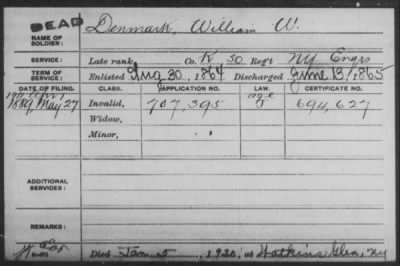 DEAD
NAME OF SOLDIER: Denmark, William W.
SERVICE: Late rank, Co. K 50 Reg't NY Engrs
TERM OF SERVICE: Enlisted Aug. 30, 1864 Discharged June 13, 1865
DATE OF FILING. CLASS. APPLICATION NO. LAW. CERTIFICATE NO.
1889, May 27 Invalid, 707,395 694,627
Widow,
Minor,
ADDITIONAL SERVICES:
REMARKS:
Died Jan 5, 1920, at Watkins Glen, NY